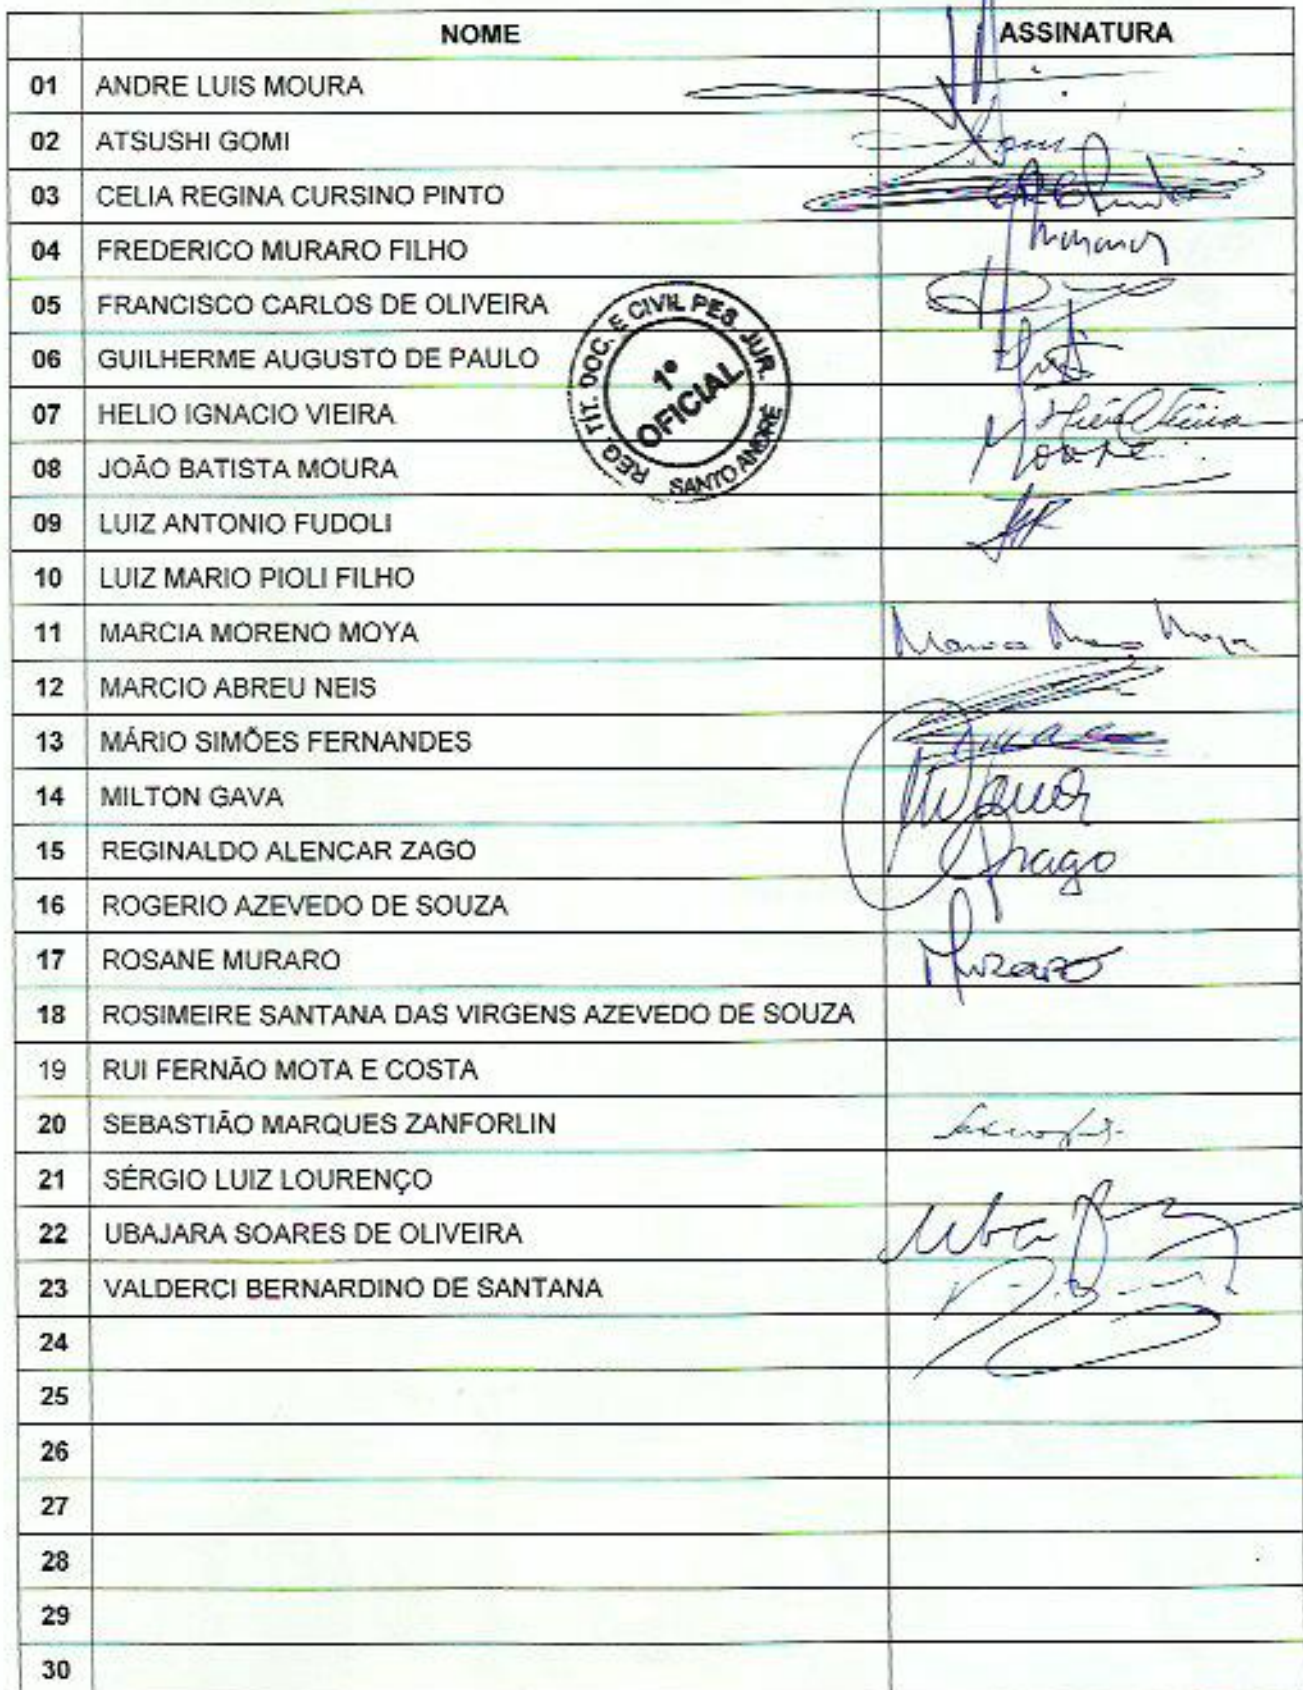 NOME ASSINATURA
01 ANDRE LUIS MOURA
02 ATSUSHI GOMI Gomi
03 CELIA REGINA CURSINO PINTO
04 FREDERICO MURARO FILHO
05 FRANCISCO CARLOS DE OLIVEIRA
06 GUILHERME AUGUSTO DE PAULO
07 HELIO IGNACIO VIEIRA
08 JOÃO BATISTA MOURA
09 LUIZ ANTONIO FUDOLI
10 LUIZ MARIO PIOLI FILHO
11 MARCIA MORENO MOYA
12 MARCIO ABREU NEIS
13 MÁRIO SIMÕES FERNANDES
14 MILTON GAVA
15 REGINALDO ALENCAR ZAGO
16 ROGERIO AZEVEDO DE SOUZA
17 ROSANE MURARO Muraro
18 ROSIMEIRE SANTANA DAS VIRGENS AZEVEDO DE SOUZA
19 RUI FERNÃO MOTA E COSTA
20 SEBASTIÃO MARQUES ZANFORLIN
21 SÉRGIO LUIZ LOURENÇO
22 UBAJARA SOARES DE OLIVEIRA
23 VALDERCI BERNARDINO DE SANTANA
24
25
26
27
28
29
30
REG. TIT. DOC. E CIVIL PES. JUR.
1º
OFICIAL
SANTO ANDRÉ